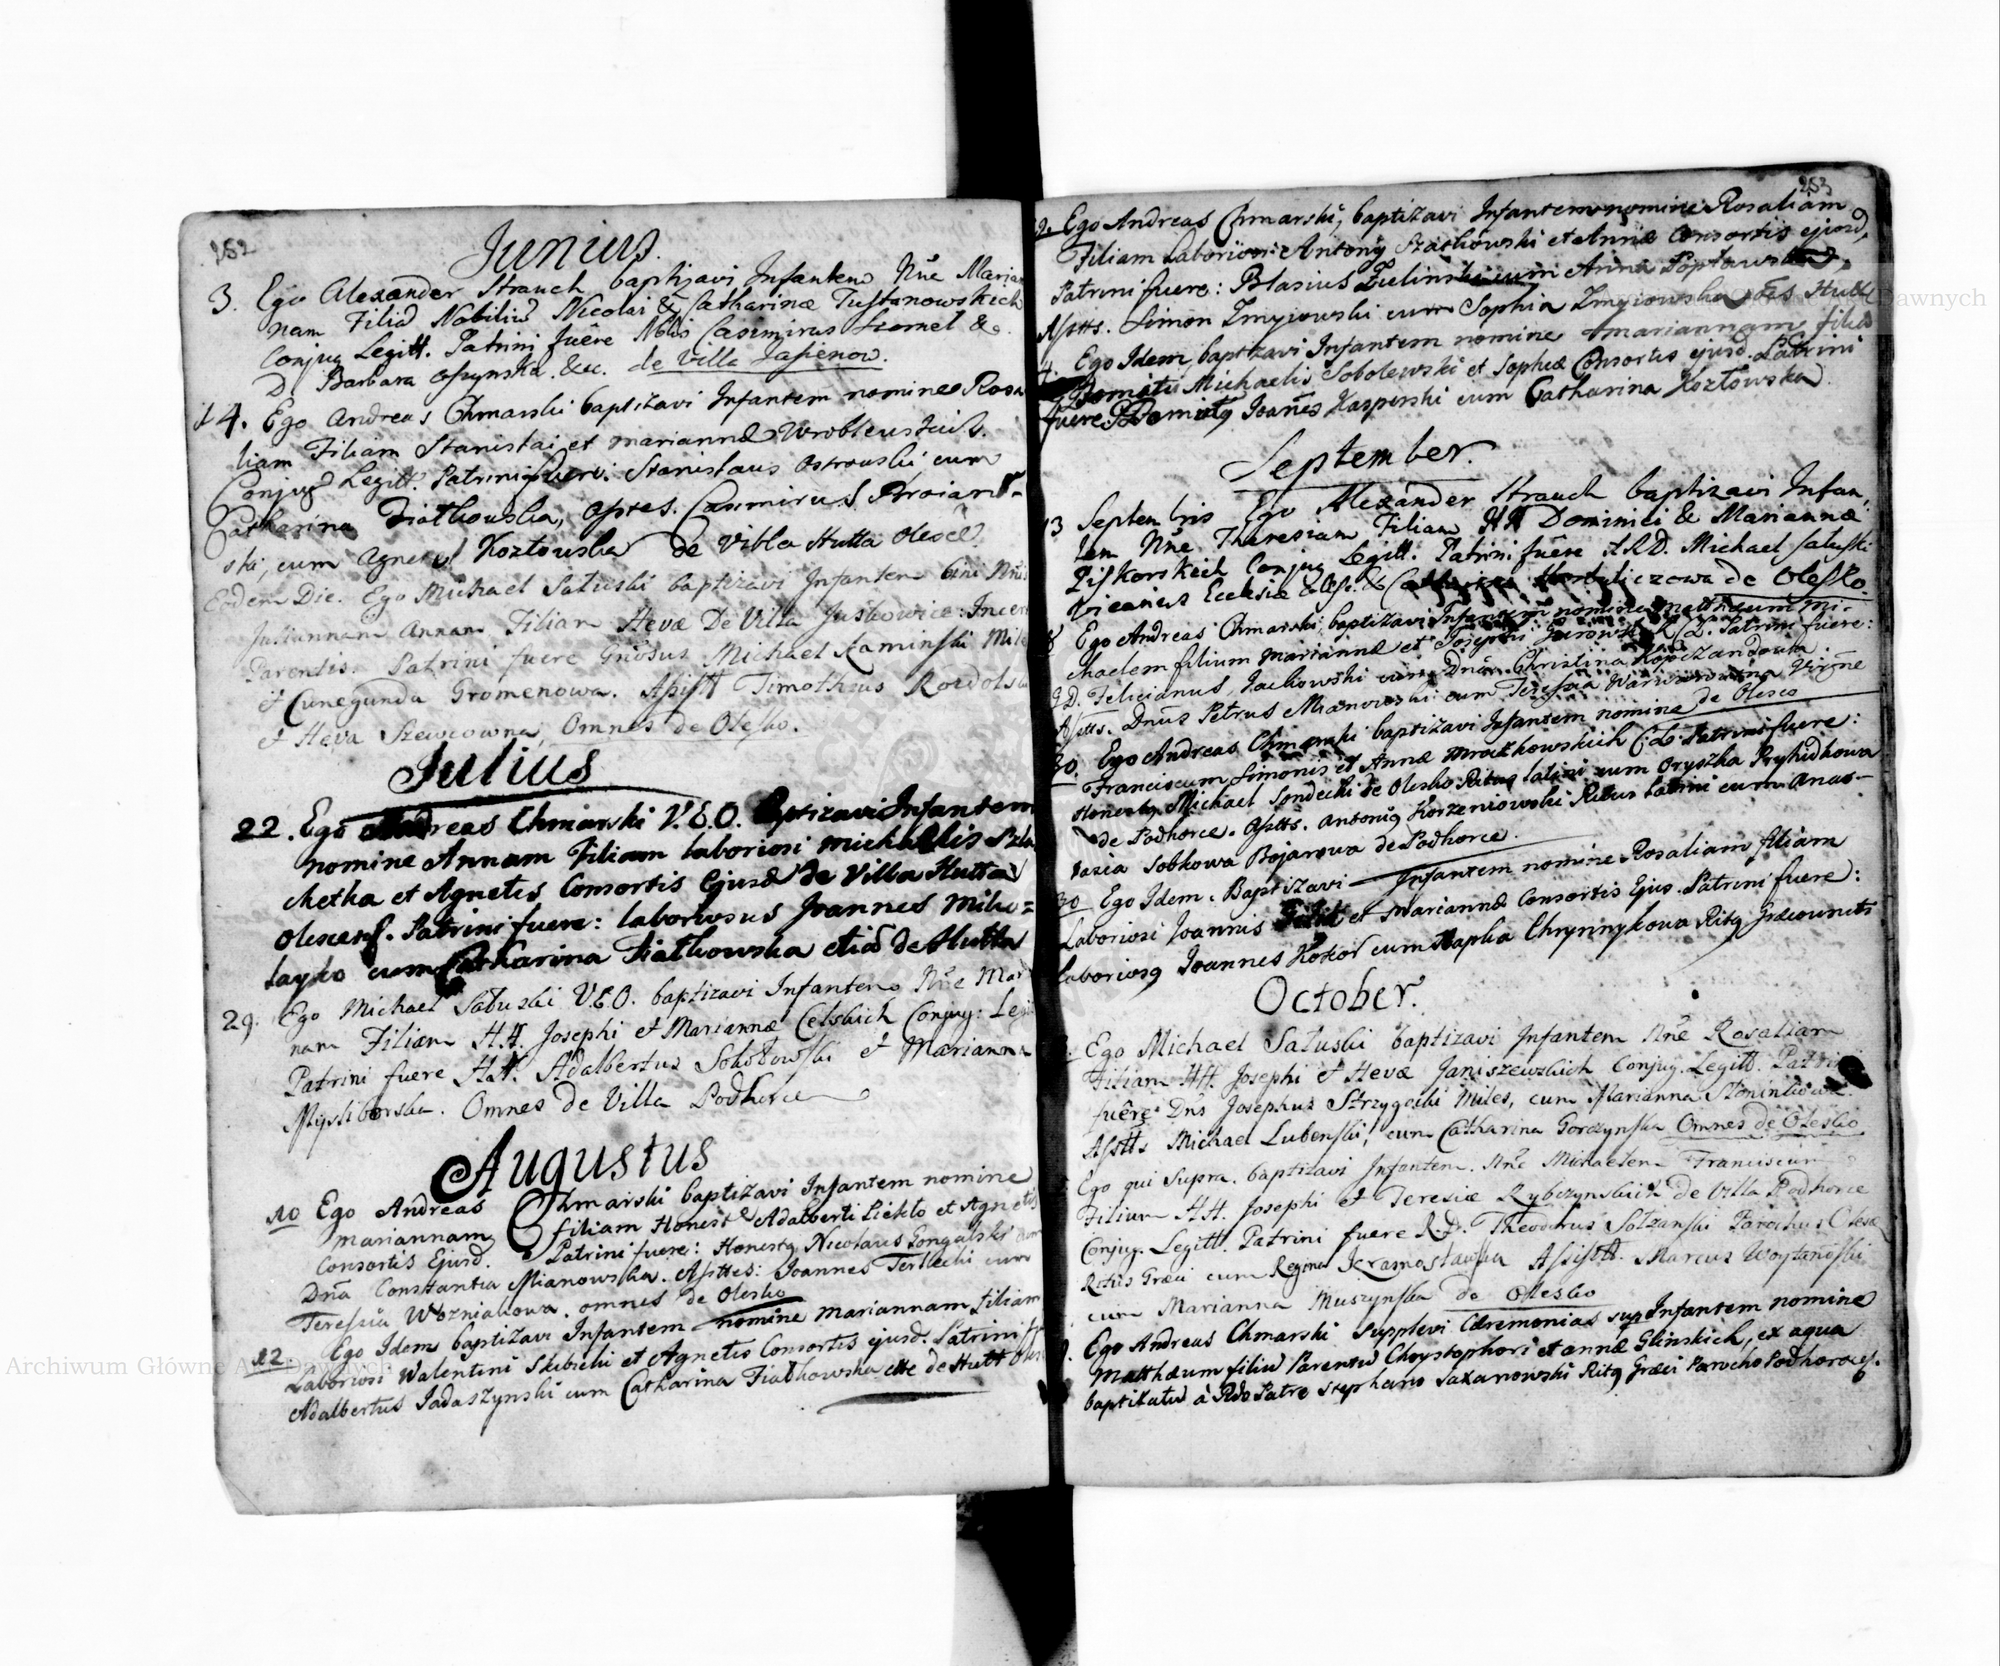 252
Junius.
3. Ego Alexander Strauch baptizavi Infantem Nne Marian
nam Filiã Nobiliũ Nicolai & Catharinæ Tustanowskich
Conjug Legitt. Patrini fuêre Nblis Casimirus &c.
D. Barbara &c. de Villa Jasienow.
14. Ego Andreas Chmarski baptizavi Infantem nomine Rosa
liam Filiam Stanislai et Mariannæ Wroblewskich.
Conjug Legitt. Patrini fuere: Stanislaus Ostrowski cum
Catharina Fiatkowska, Asstes. Casimirus
ski, cum Agnete Kozłowska de Villa Hutta Olesce
Eodem Die. Ego Michael Satuski baptizavi Infantem bini Nnis
Juliannam Annam Filiam Hevæ De Villa Juskowice: Incer
Parentis. Patrini fuere Gnosus Michael Kaminski Mile
et Cunegunda Gromenowa. Assistt Timotheus
et Heva Szewcowna, Omnes de Olesko.
Julius
22. Ego Andreas Chmarski V.E.O. Baptizavi Infantem
nomine Annam Filiam laboriosi Michaelis Szla
chetka et Agnetis Consortis Ejusd de Villa Hutta
Olescens. Patrini fuere: laboriosus Joannes Miko=
layko cum Catharina Fiatkowska etiã de Hutta
29. Ego Michael Satuski V.E.O. baptizavi Infantem Nne Mari
nam Filiam H.H. Josephi et Mariannæ Celskich Conjug: Legi
Patrini fuere H.H. Adalbertus Sokołowski et Marianna
Mysliborska. Omnes de Villa Podhorce
Augustus
10 Ego Andreas Chmarski baptizavi Infantem nomine
Mariannam filiam Honest Adalberti et Agnetis
Consortis Ejusd. Patrini fuere: Honestg Nicolaus Gongalski cum
Dna Constantia Mianowska. Assttes: Joannes Terlecki cum
Teressia Woznianowa. omnes de Olesko
12 Ego Idem baptizavi Infantem nomine Mariannam filiam
Laboriosi Walentini et Agnetis Consortis ejusd. Patrini
Adalbertus Jadaszynski cum Catharina Fiatkowska de Hutt
253
9. Ego Andreas Chmarski, baptizavi Infantem nomine Rosaliam
Filiam Laboriosi Antony Stachowski et Annæ Consortis ejusd,
Patrini fuere: Blasius Zielinski cum Anna Poptawska,
Asstts. Simon Zmyiowski cum Sophia Zmyiowska Hutt
4. Ego Idem baptizavi Infantem nomine Mariannam filiã
Michaelis Sobolewski et Sophiæ Consortis ejusd. Patrini
fuere Joanes Kasperski cum Catharina Kozłowska.
September.
13 Septembris Ego Alexander Strauch baptizavi Infan,
tem Nne Theresiam Filiam HH Dominici & Mariannæ
Piskorskich Conjug Legitt. Patrini fuêre A.R.D. Michael Satuski
Vicarius Ecclesiæ Olesc. & de Olesko.
8 Ego Andreas Chmarski, baptizavi Infantem nomine Matthæum Mi-
chaelem filium Mariannæ et Josephi C.L. Patrini fuere:
G.D. Felicianus Jackowski cum Dna Christina
Asstts. Dnus Petrus Mianowski cum Teressia Virgne
de Olesco
30. Ego Andreas Chmarski baptizavi Infantem nomine
Franciscum Simonis et Annæ Mroczkowskich C:L. Patrini fuere:
Honestg Michael Sondecki de Olesko Ritus latini cum Oryszka Prykidkowa
de Podhorce. Asstts. Antonig Korzeniowski Ritus Latini cum Anas-
tasia Sobkowa Bojarowa de Podhorce.
30 Ego Idem. Baptizavi Infantem nomine Rosaliam filiam
Laboriosi Joannis et Mariannæ Consortis Ejus. Patrini fuere:
Laboriosg Joannes Kokor cum Hapka Chrynnykowa Ritg Græcounits
October.
Ego Michael Satuski baptizavi Infantem Nne Rosaliam
Filiam HH. Josephi et Hevæ Janiszewskich Conjug. Legitt. Patrini
fuêre Dns Josephus Strzygocki Miles, cum Marianna
Assstts Michael Lubenski, cum Catharina Gorczynska Omnes de Olesko
Ego qui Supra. baptizavi Infantem. Nne Michaelem Franciscum
Filium H.H. Josephi et Teresiæ Rybczynskich de Villa Podhorce
Conjug. Legitt. Patrini fuere R.D. Theodorus Sotzanski Parochus Olesc
Ritus Græci cum Regina Assistt. Marcus Woytanoski
cum Marianna Muszynska de Olesko
Ego Andreas Chmarski supplevi Cæremonias sup Infantem nomine
Matthæum filiũ Parentũ Chrystophori et Annæ Glinskich, ex aqua
baptizatũ à Rdo Patre Stephano Saxanowski Ritg Græci Parocho Podhorces.